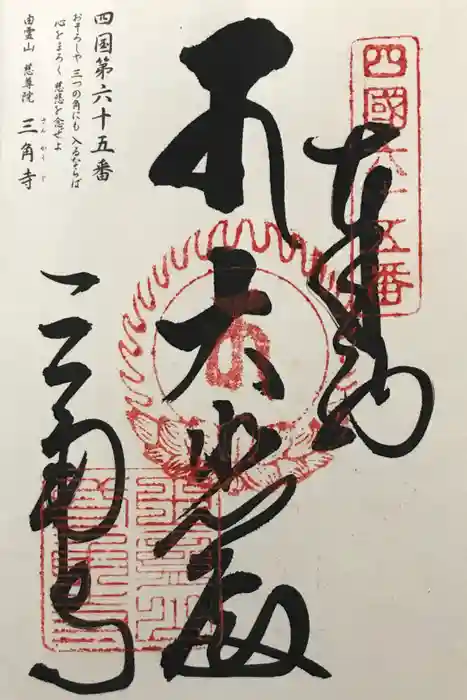 四國六十五番
奉納
大悲殿
三角寺
四国第六十五番
おそろしや 三つの角にも 入るならば
心をまろく 慈悲を念せよ
由霊山 慈尊院 三角寺
さんかくじ